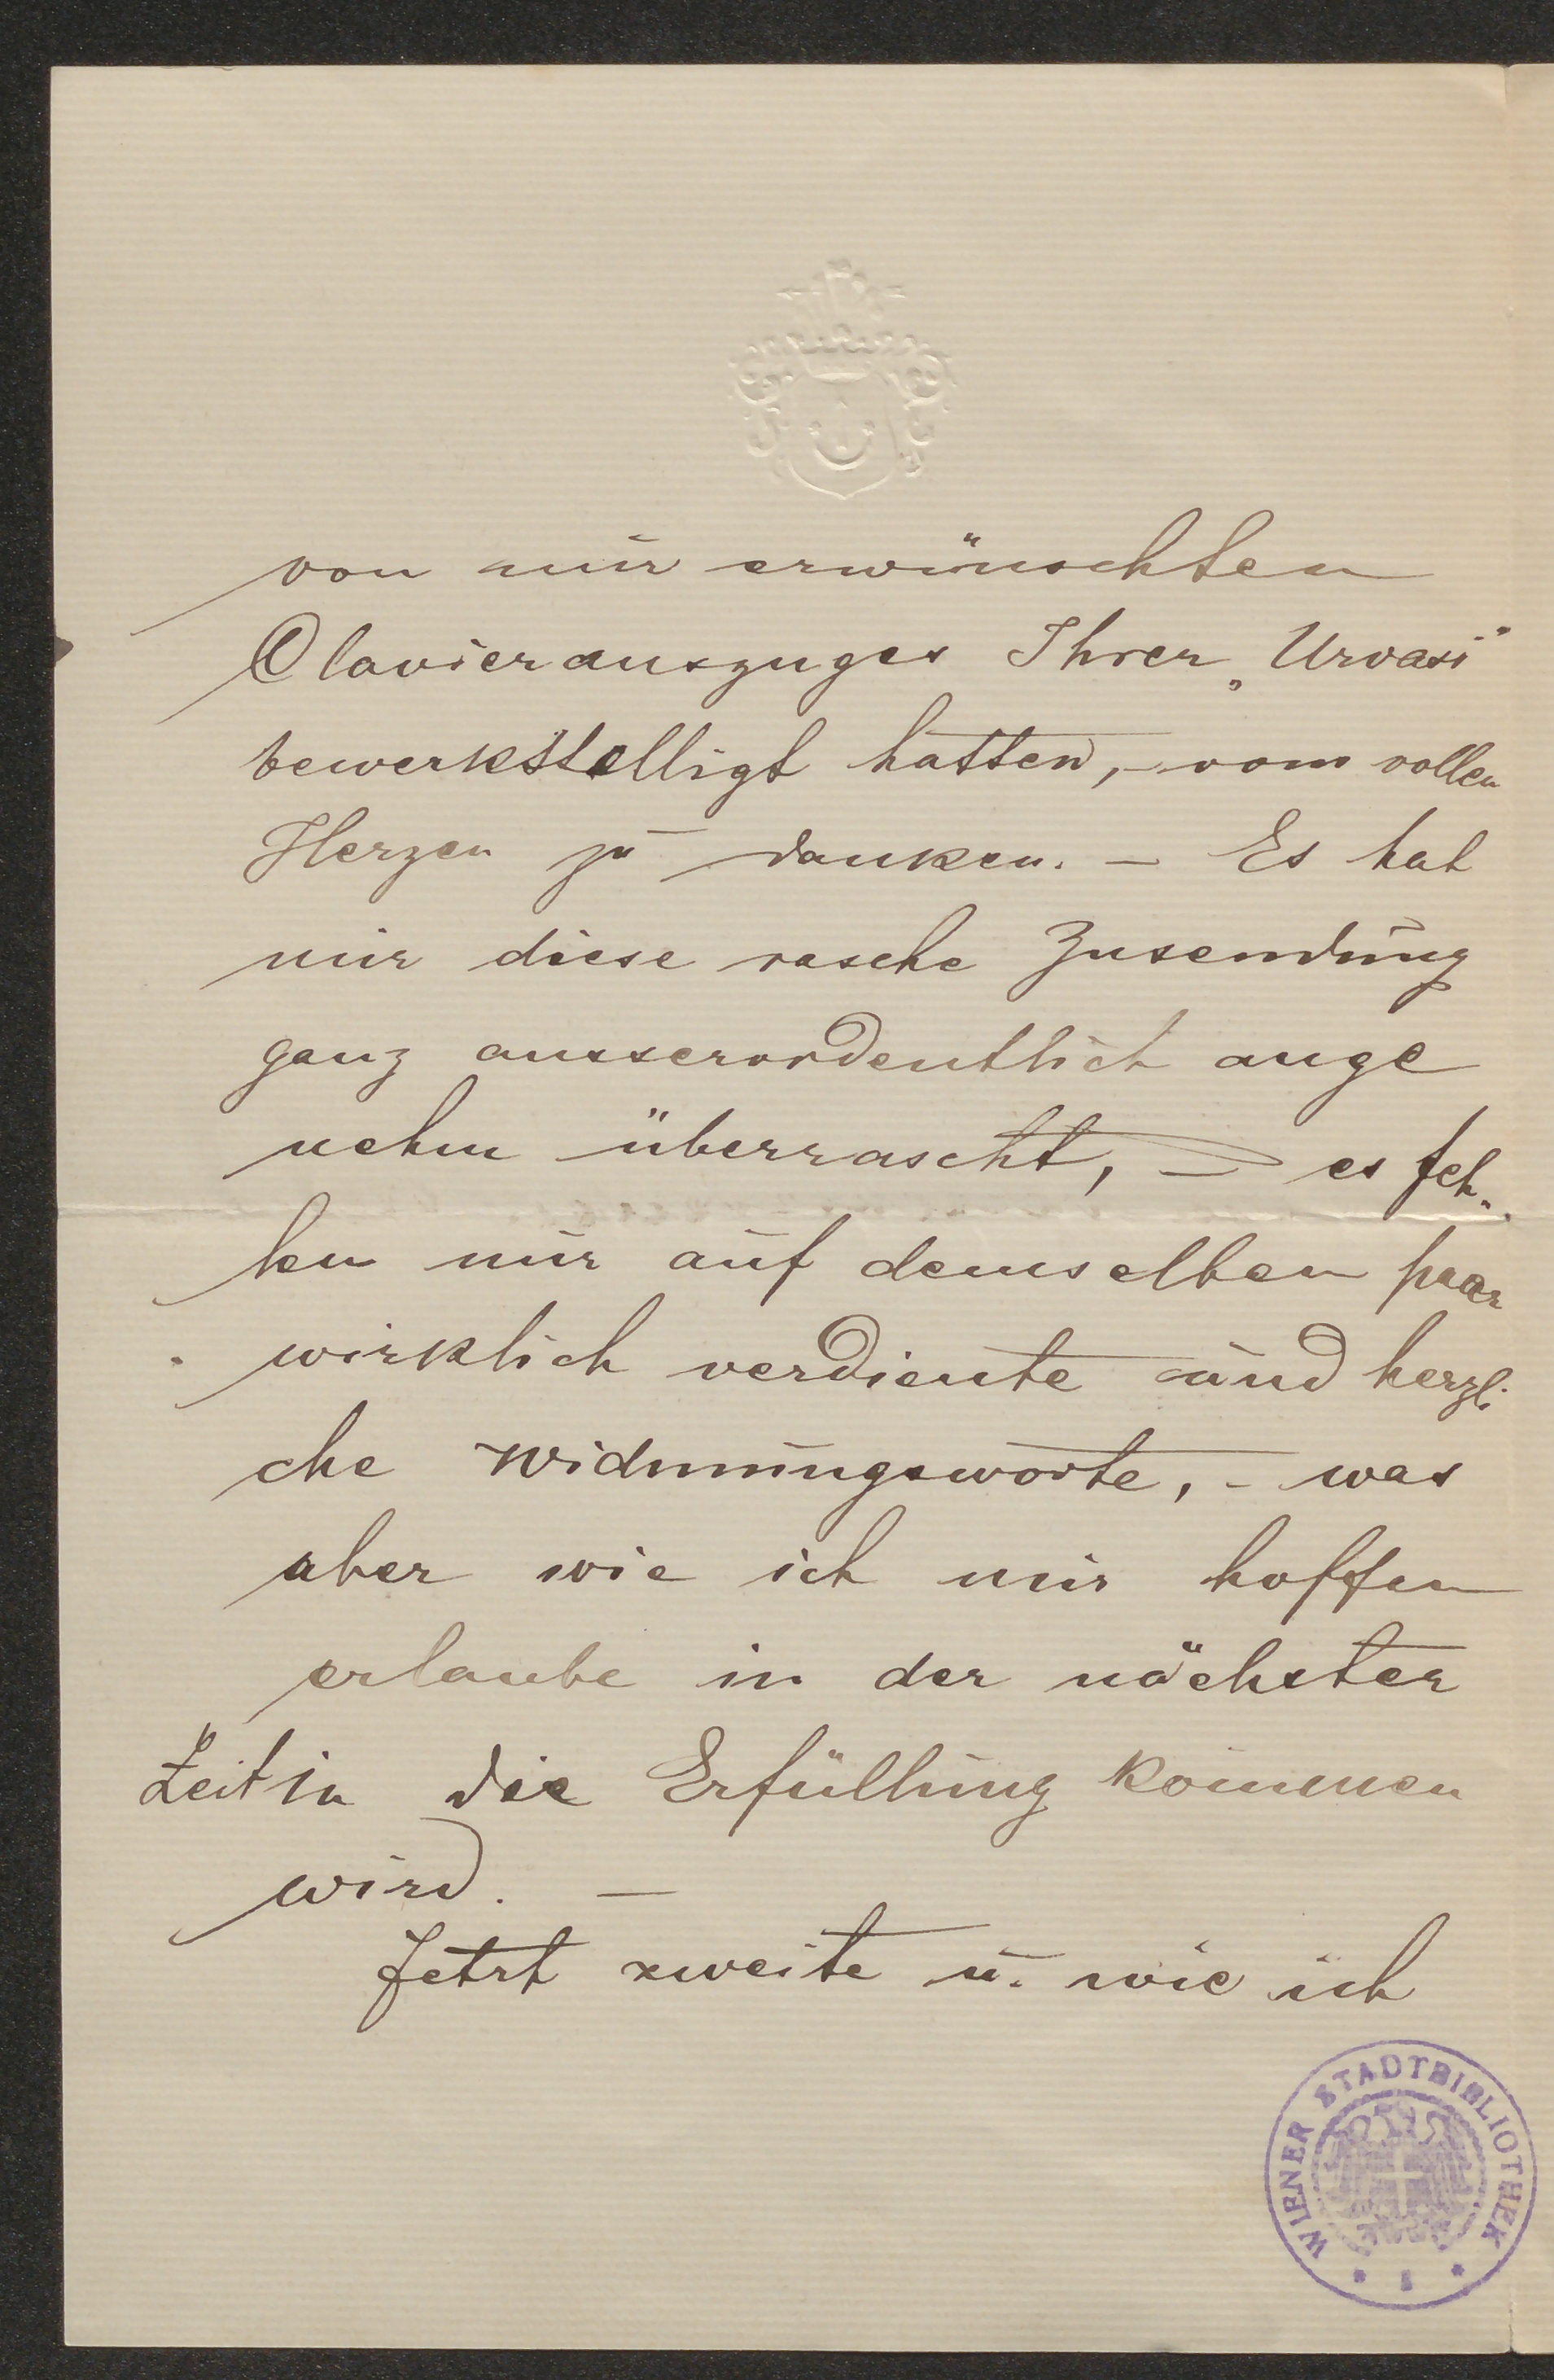 von mir erwünschten
Clavierauszuges Ihrer „Urvasi“
bewerkstelligt hatten, – vom vollen
Herzen zu danken. – Es hat
mir diese rasche Zusendung
ganz ausserordentlich ange
nehm überrascht, – es feh„
len nur auf demselben paar
wirklich verdiente und herzli
che Widmungsworte, – was
aber wie ich mir hoffen
erlaube in der nächster
Zeit in die Erfüllung kommen
wird. –
Jetzt zweite u. wie ich
WIENER STADTBIBLIOTHEK